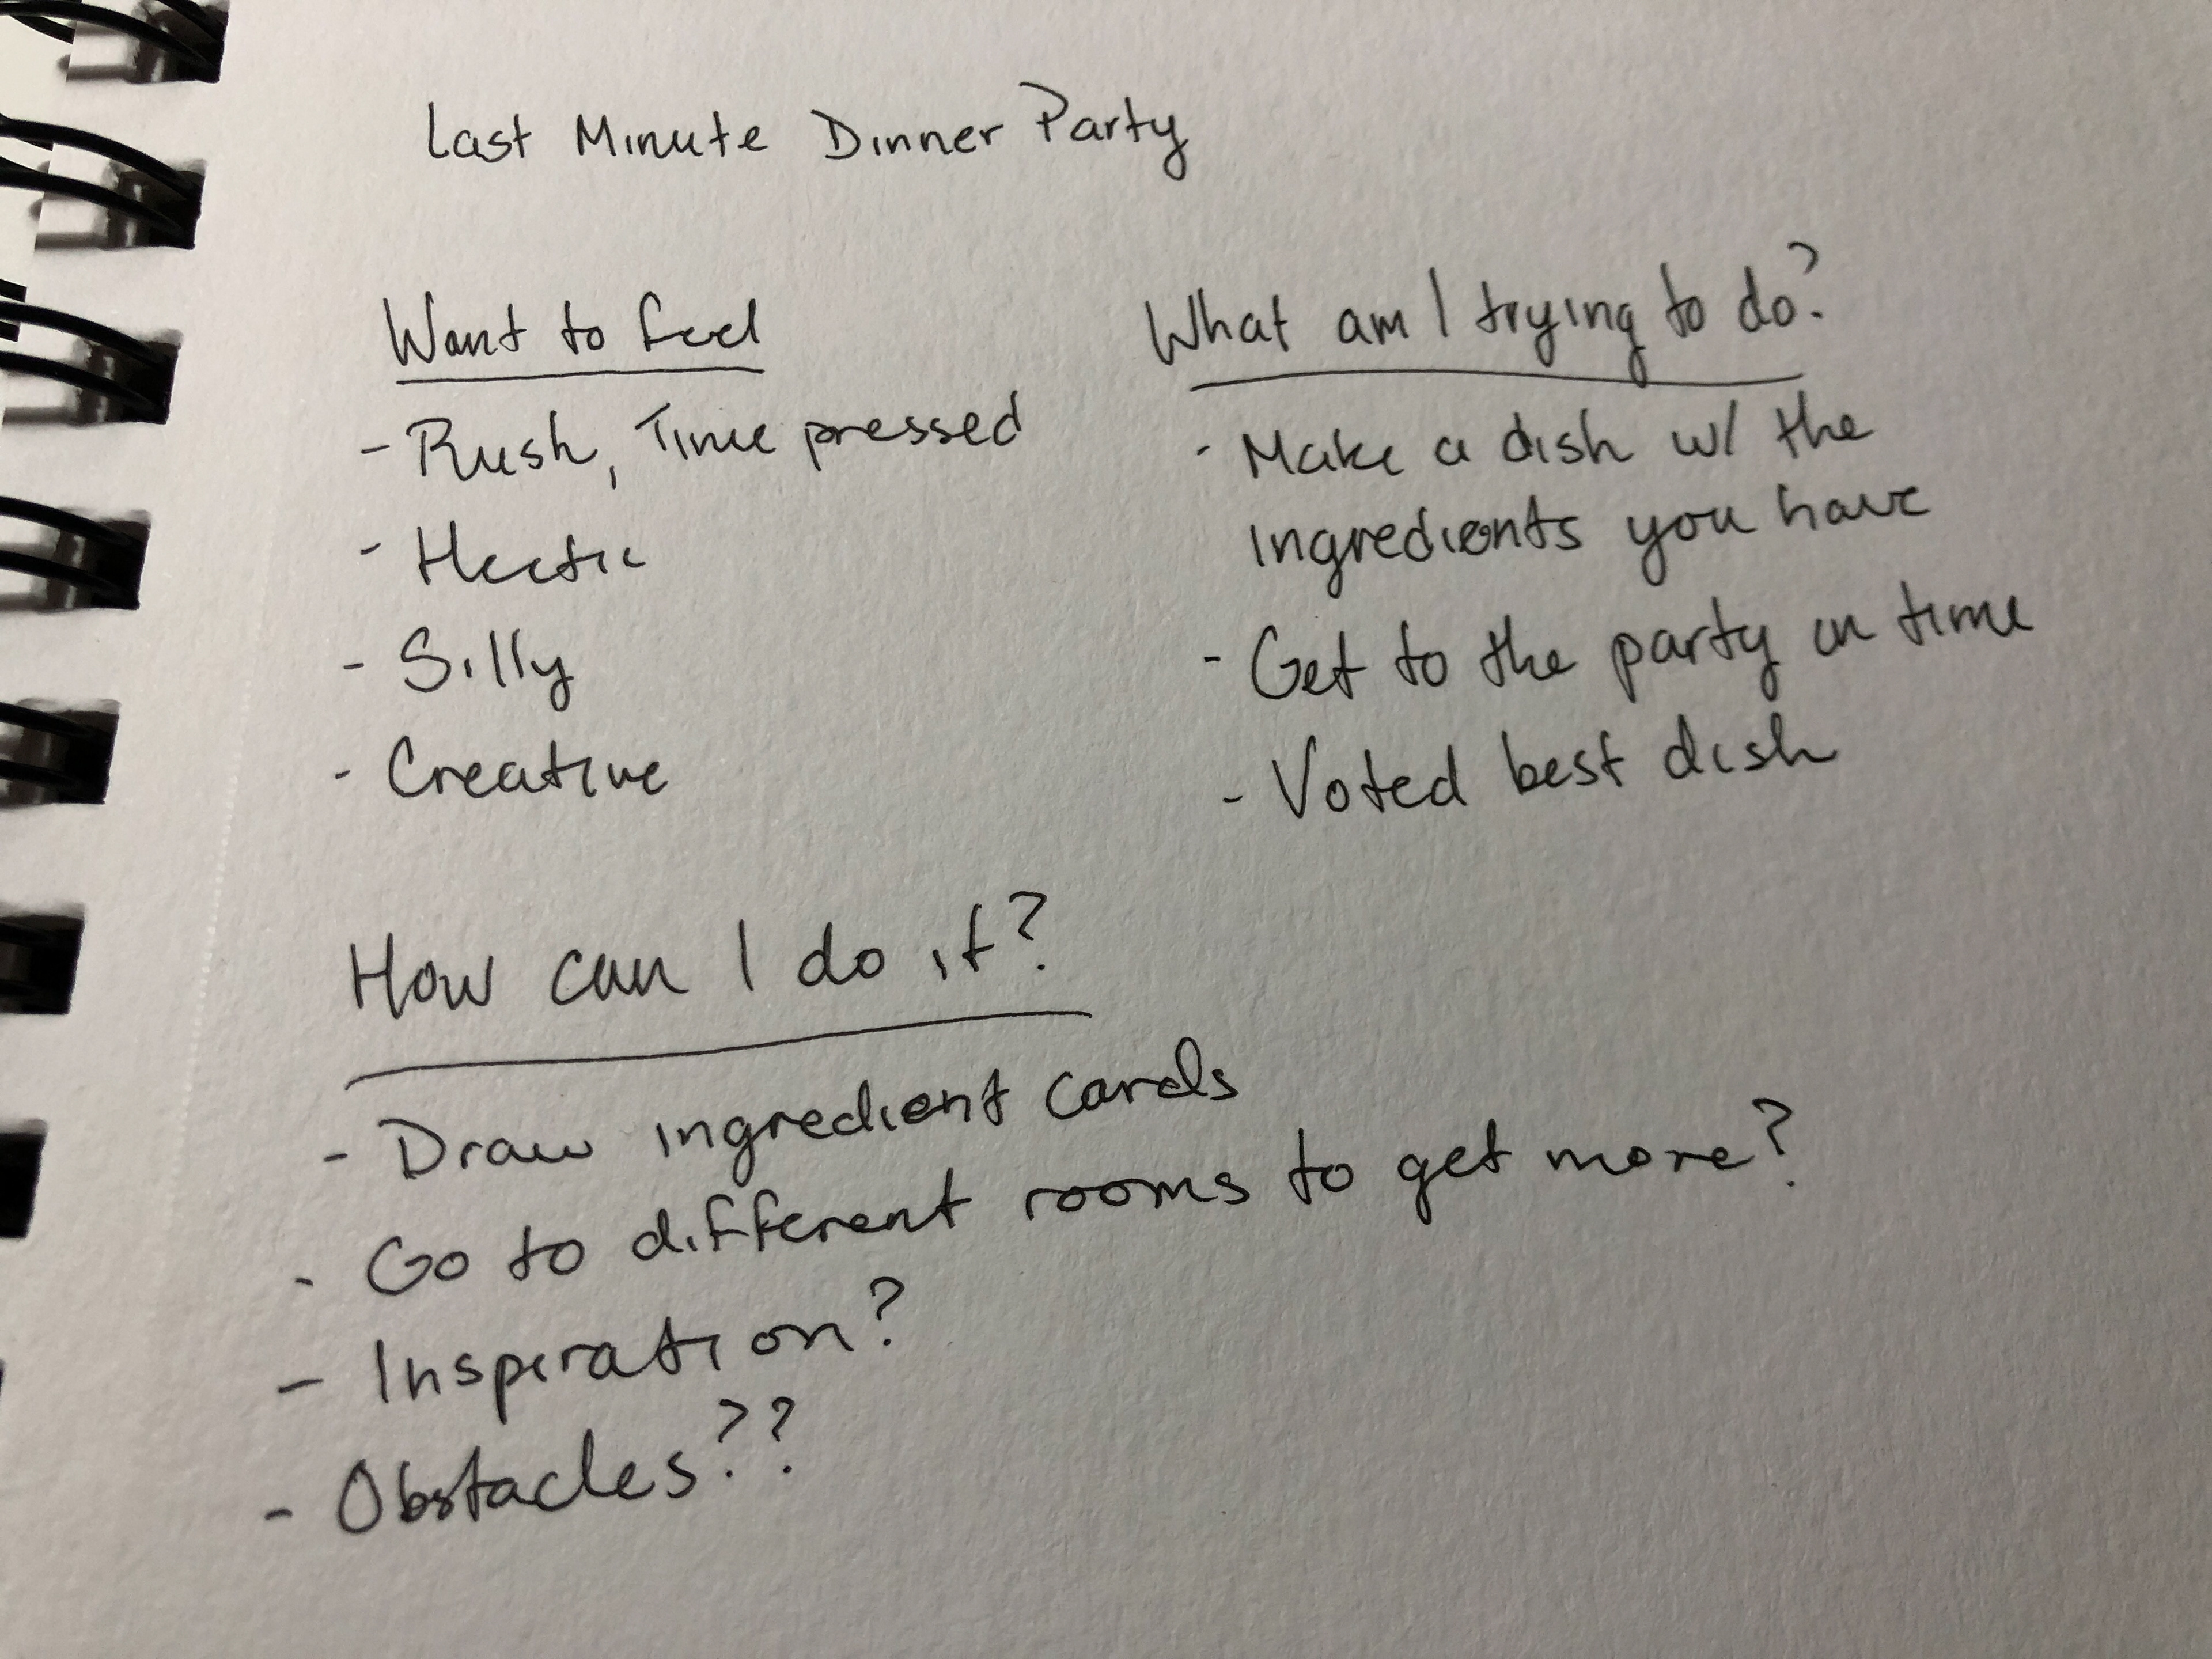 Last Minute Dinner Party
Want to feel
- Rush, Time pressed
- Hectic
- Silly
- Creative
What am I trying to do?
- Make a dish w/ the
ingredients you have
- Get to the party on time
- Voted best dish
How can I do it?
- Draw ingredient cards
- Go to different rooms to get more?
- Inspiration?
- Obstacles??